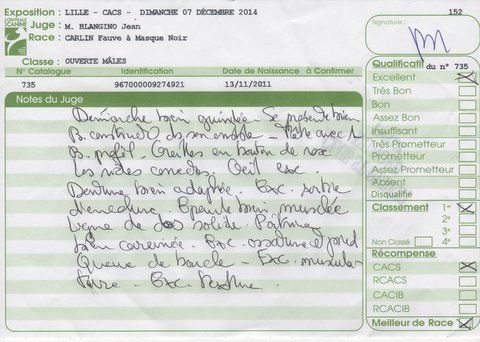 CENTRALE
CANINE
Exposition : LILLE - CACS - DIMANCHE 07 DÉCEMBRE 2014
152
Juge : M. BLANGINO Jean
Race : CARLIN Fauve à Masque Noir
Signature :
Classe : OUVERTE MÂLES
N° Catalogue Identification Date de Naissance à Confirmer
735 967000009274921 13/11/2011
Notes du Juge
Démarche bien guindée - Se présente bien
B. construct ds son ensble - Tête avec
B. profil. Oreilles en bouton de rose
Les rides correctes. Oeil exc.
Denture bien adaptée. Exc. sortie
d'encolure. Epaule bien musclée
Ligne de dos solide. Poitrine
bien carennée. Exc. ossature et pied
Queue de boucle - Exc. muscular
Exc.
Qualificatif du n° 735
Excellent
Très Bon
Bon
Assez Bon
Insuffisant
Très Prometteur
Prometteur
Assez Prometteur
Absent
Disqualifié
Classement 1er
2e
3e
Non Classé 4e
Récompense
CACS
RCACS
CACIB
RCACIB
Meilleur de Race